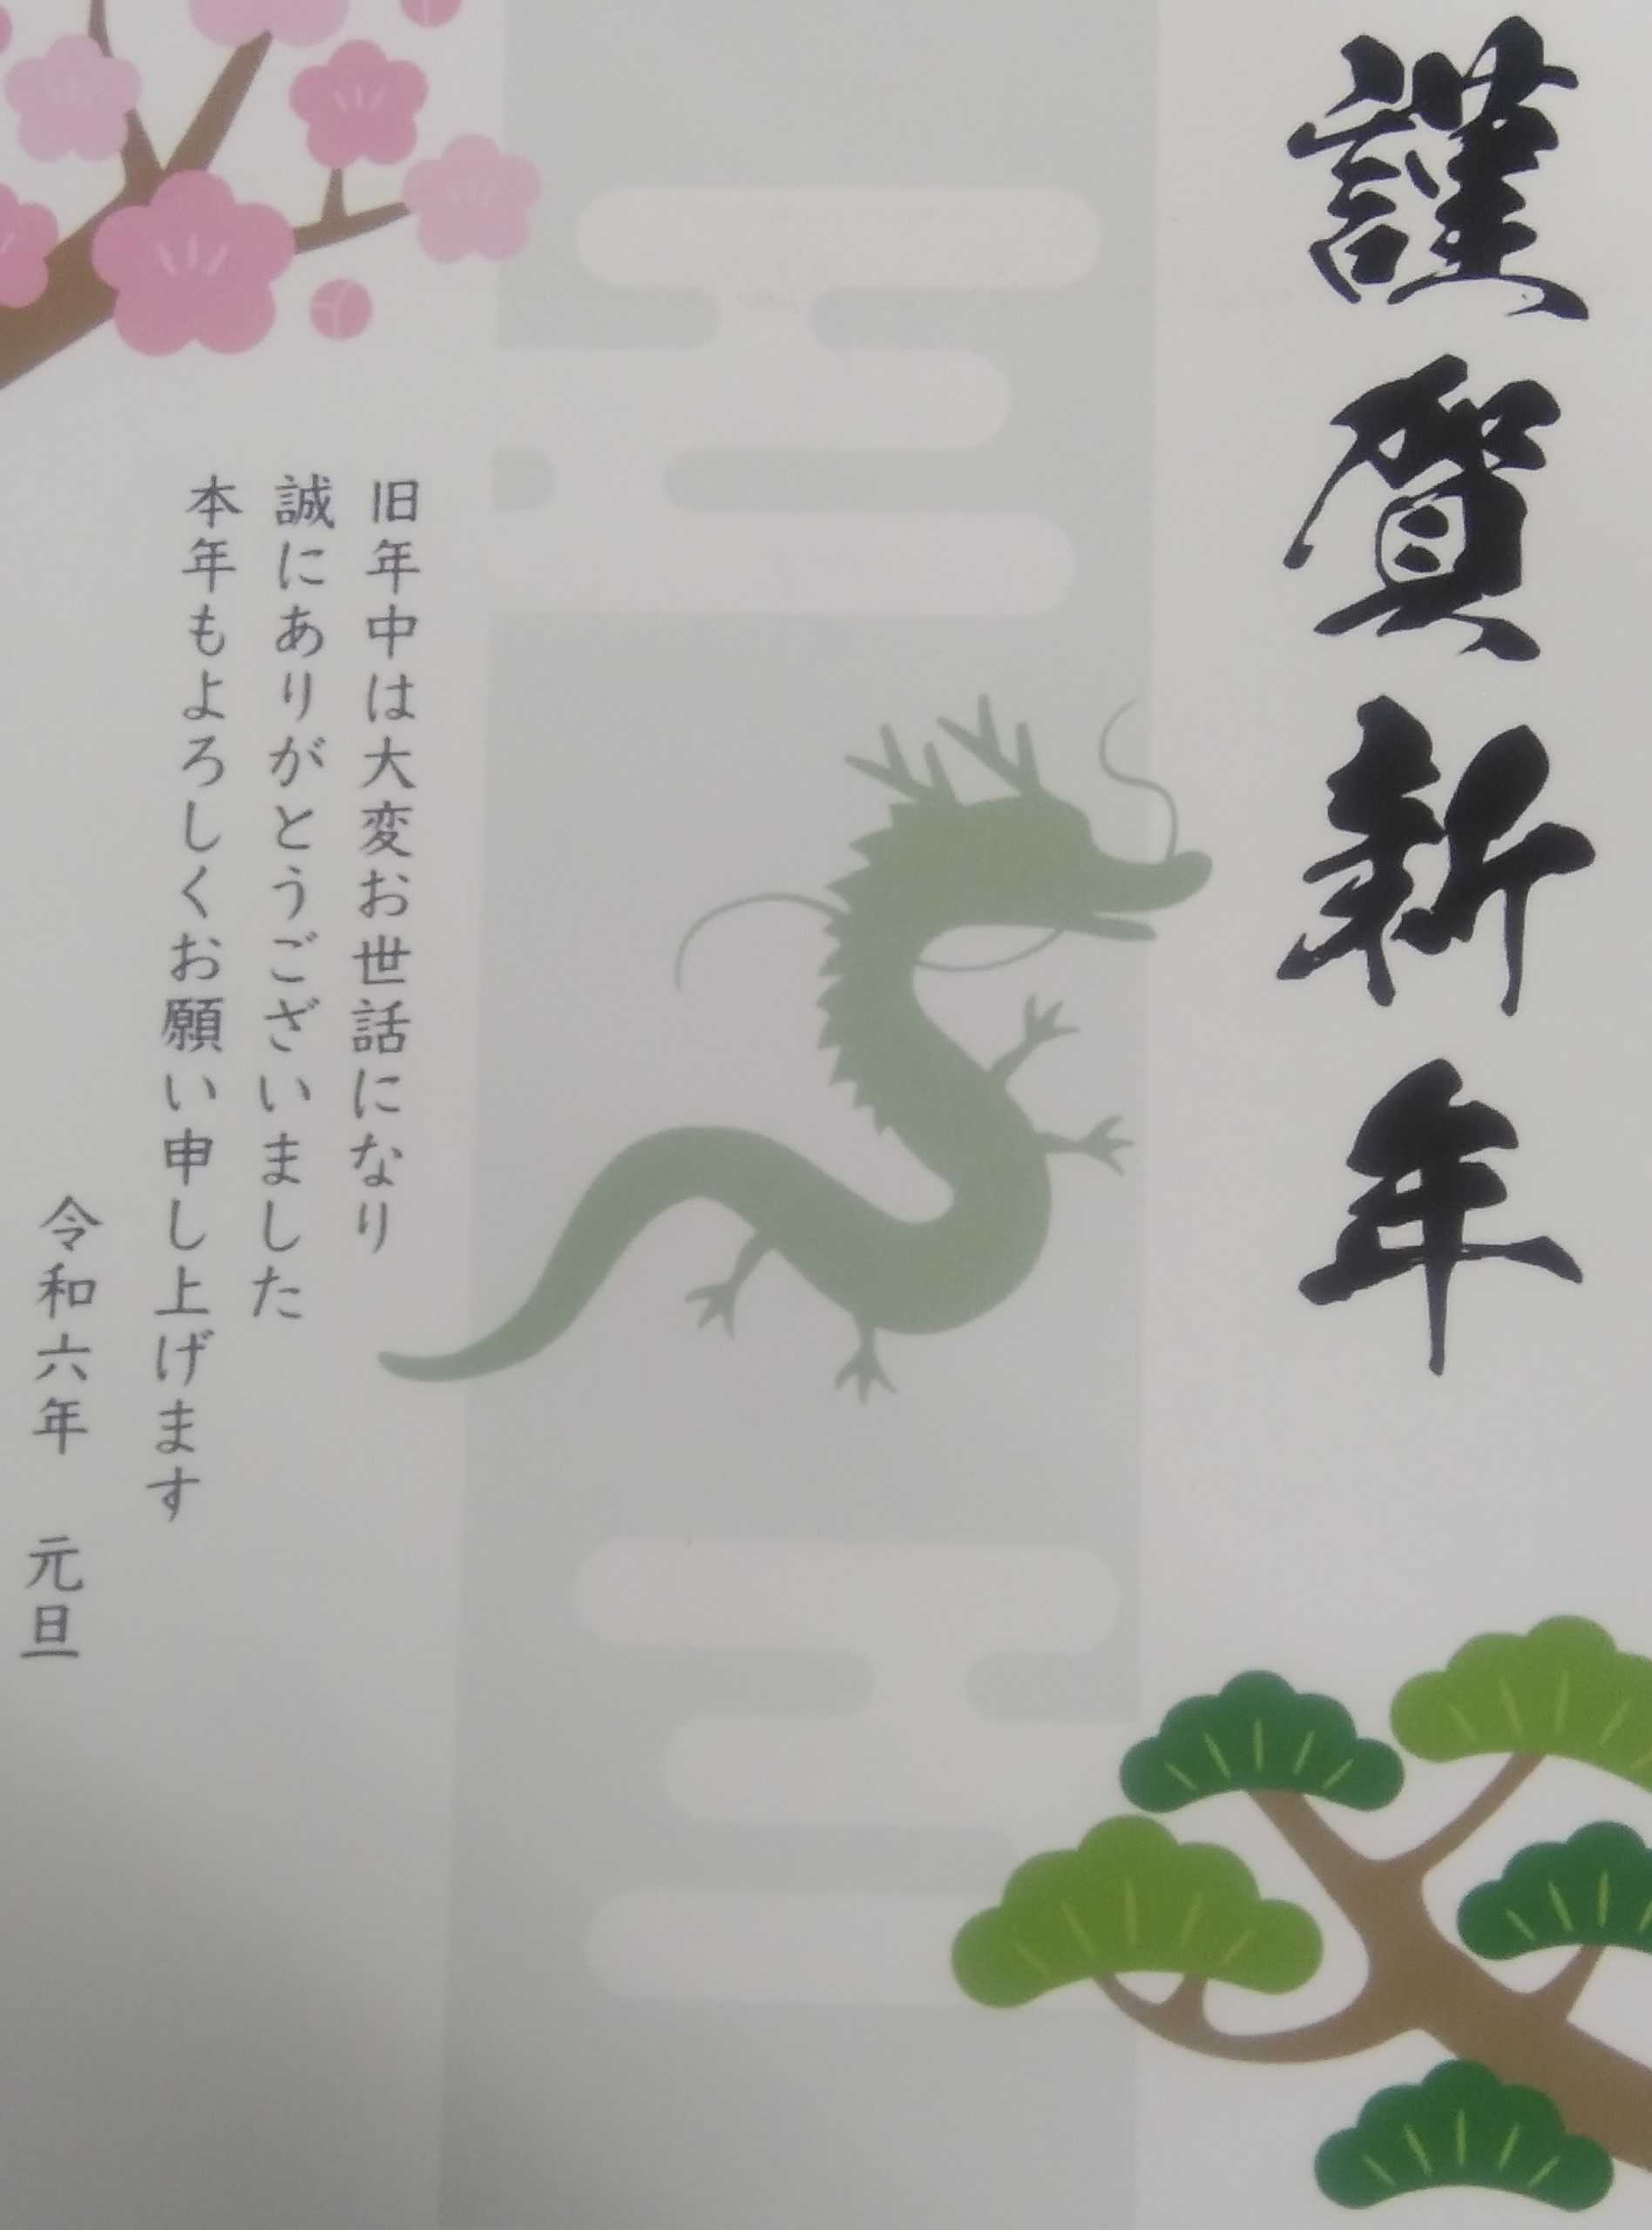 謹賀新年
旧年中は大変お世話になり
誠にありがとうございました
本年もよろしくお願い申し上げます
令和六年　元旦